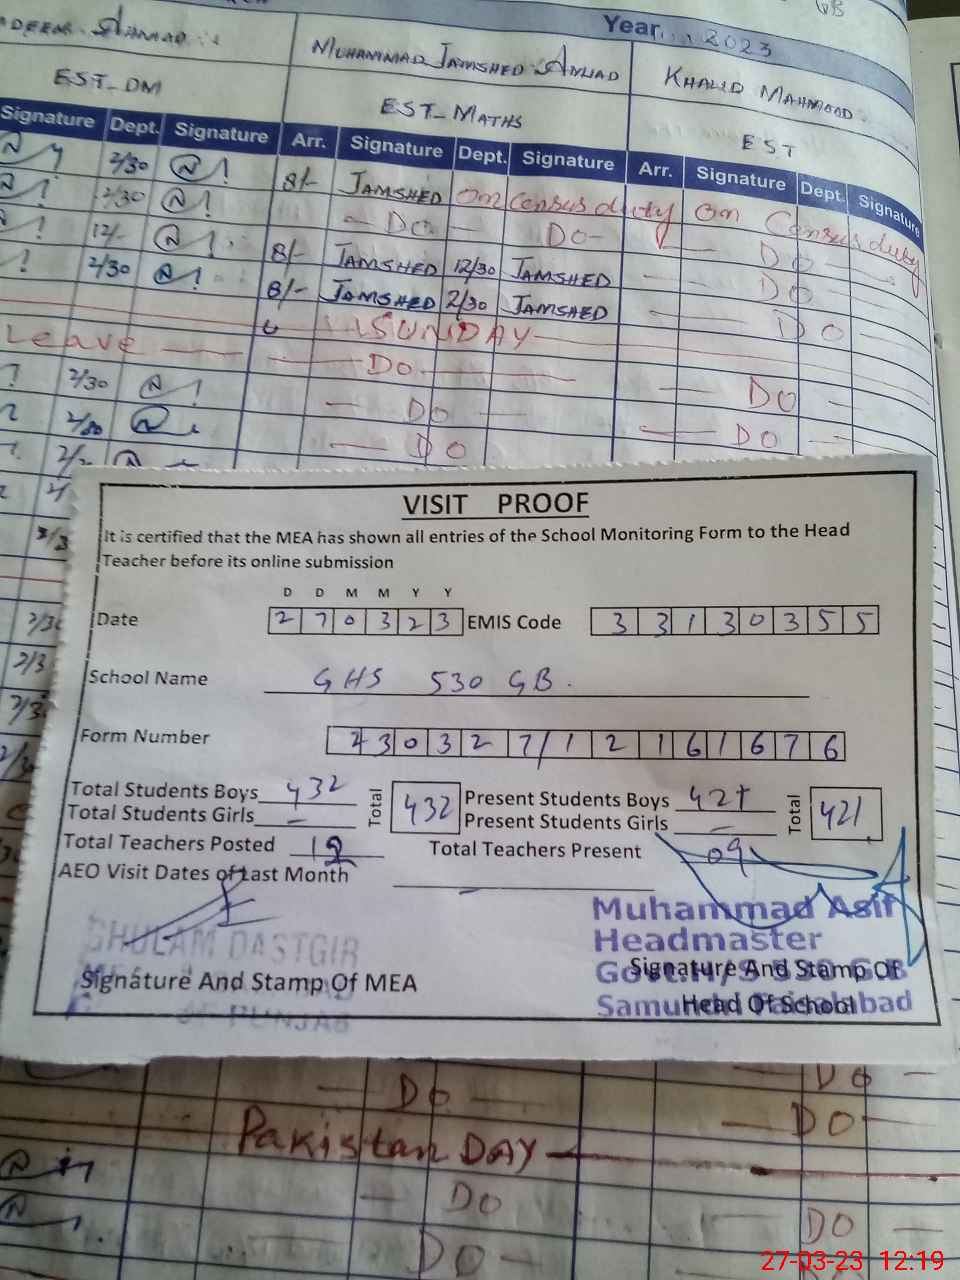 GB
Year 2023
MUHAMMAD JAMSHED AMJAD
KHALID MAHMOOD
EST-DM
EST-MATHS
EST
Signature Dept. Signature Arr. Signature Dept. Signature Arr. Signature Dept. Signature
2/30 8/- JAMSHED on census duty on Census duty
2/30 - DO - DO - DO
12/- 8/- JAMSHED 12/30 JAMSHED DO
2/30 8/- JAMSHED 2/30 JAMSHED DO
SUNDAY
Leave DO
2/30 DO DO
2/30 DO DO
VISIT PROOF
It is certified that the MEA has shown all entries of the School Monitoring Form to the Head
Teacher before its online submission
D D M M Y Y
Date 2 7 0 3 2 3 EMIS Code 3 3 1 3 0 3 5 5
School Name GHS 530 GB.
Form Number 23032 7/1 2 1 6 1 6 7 6
Total Students Boys 432 Total 432 Present Students Boys 421 Total 421
Total Students Girls - Present Students Girls -
Total Teachers Posted Total Teachers Present 09
AEO Visit Dates of Last Month -
GHULAM DASTGIR
Signature And Stamp Of MEA
OF PUNJAB
Muhammad Asif
Headmaster
Signature And Stamp Of
Head Of School
DO DO
DO
Pakistan DAY
DO
DO DO
27-03-23 12:19